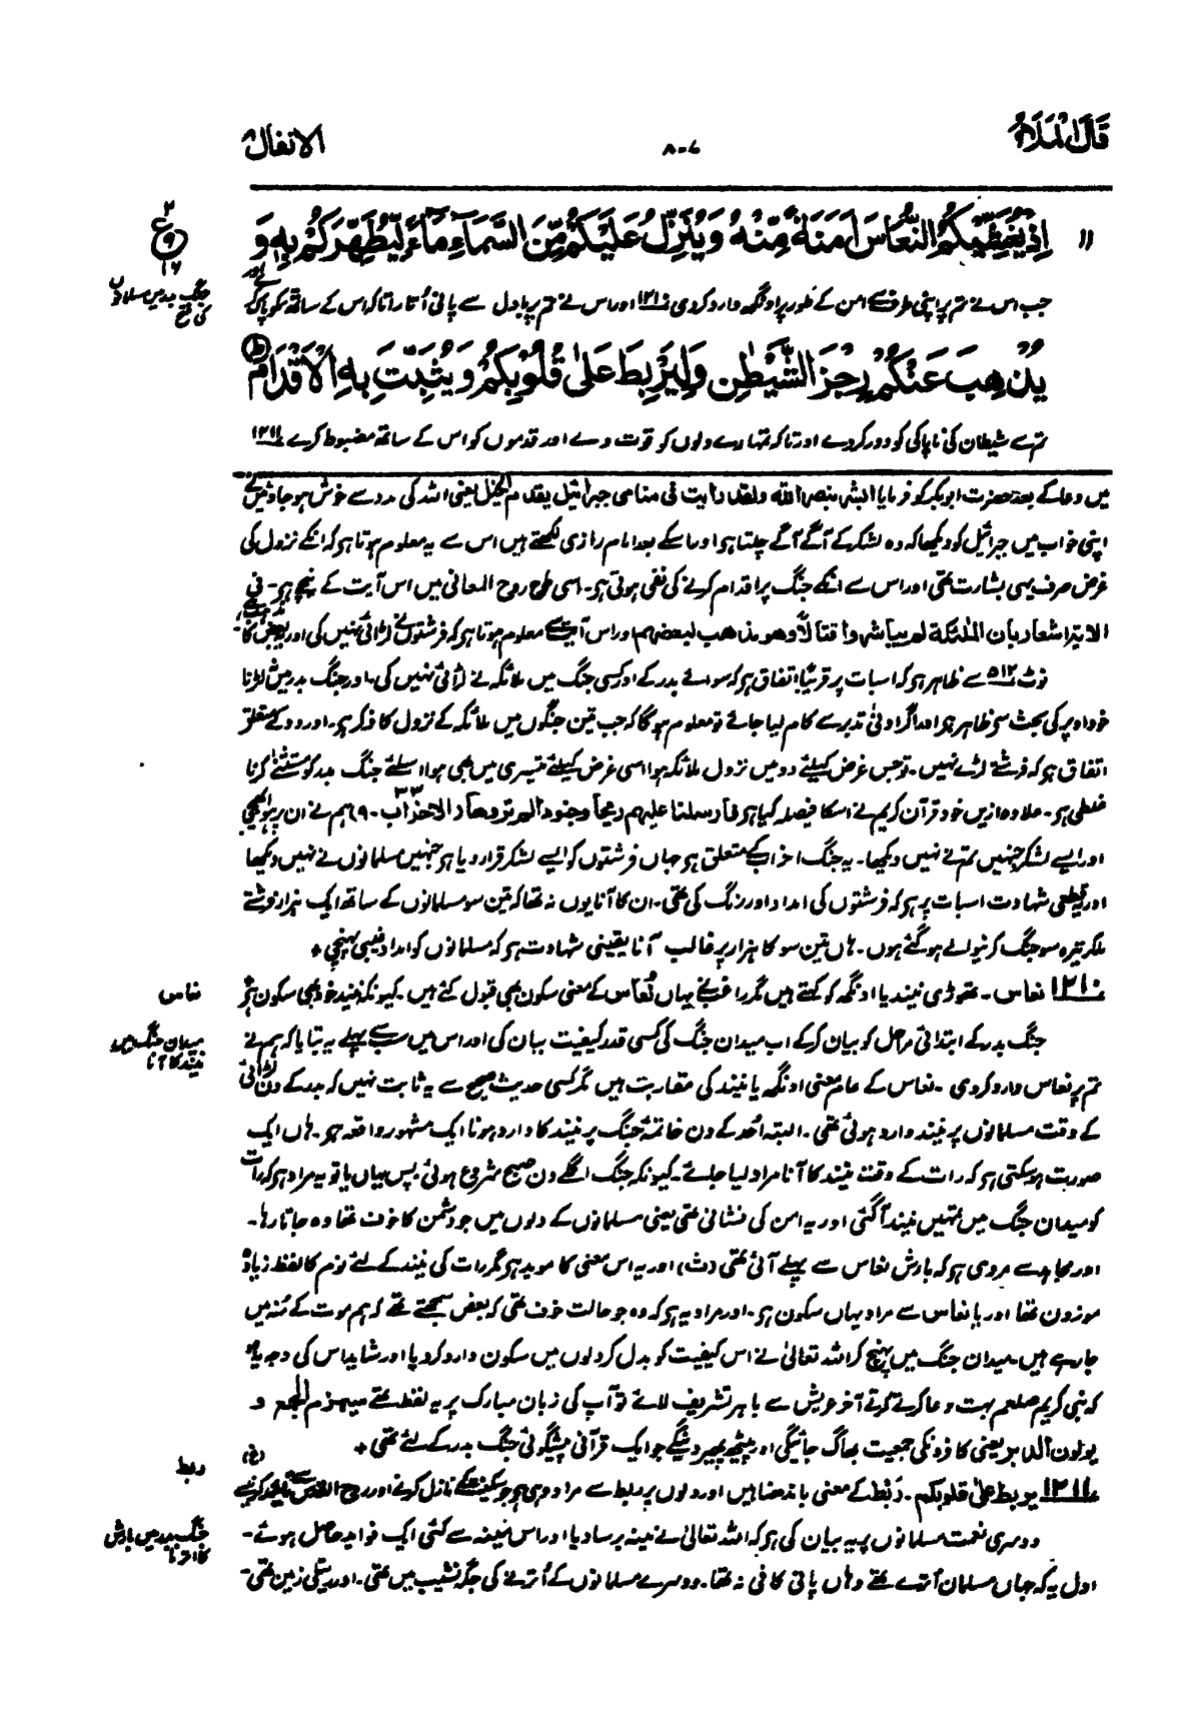 قَالَ الْمَلَاُ
۸۰۷
الانفال
۱۱ اِذْ يُغَشِّيْكُمُ النُّعَاسَ اَمَنَةً مِّنْهُ وَيُنَزِّلُ عَلَيْكُمْ مِّنَ السَّمَآءِ مَآءً لِّيُطَهِّرَكُمْ بِهٖ وَ
۲
ع
۱۶
جنگ بدر میں مسلمانوں
کی فتح
جب اس نے تم پر اپنی طرف سے امن کے طور پر اونگھ وارد کردی ۱۲۱۰ اور اس نے تم پر بادل سے پانی اُتارا تاکہ اس کے ساتھ تم کو پاک کرے اور
يُذْهِبَ عَنْكُمْ رِجْزَ الشَّيْطٰنِ وَلِيَرْبِطَ عَلٰى قُلُوْبِكُمْ وَيُثَبِّتَ بِهِ الْاَقْدَامَ ط
تم سے شیطان کی ناپاکی کو دور کردے اور تاکہ تمہارے دلوں کو قوت دے اور قدموں کو اس کے ساتھ مضبوط کرے ۱۲۱۱
میں دعا کے بعد حضرت ابوبکر کو فرمایا البشر بنصر الله ولقد رايت فى منامى جبرائيل يقدم الخيل یعنی اللہ کی مدد سے خوش ہوجاؤ میں نے
اپنی خواب میں جبرائیل کو دیکھا کہ وہ لشکر کے آگے آگے چلتا ہے اور اسکے بعد امام رازی لکھتے ہیں اس سے یہ معلوم ہوتا ہے کہ انکے نزول کی
غرض صرف یہی بشارت تھی اور اس سے انکے جنگ پر اقدام کرنے کی نفی ہوتی ہے۔ اسی طرح روح المعانی میں اس آیت کے نیچے ہے۔ فی
الایة اشعار بان الملئكة لم يباشروا قتالًا وهو مذهب لبعضهم اور اس آیت سے معلوم ہوتا ہے کہ فرشتوں نے لڑائی نہیں کی اور یہ بعض کا مذہب ہے
نوٹ ۵۱۲ سے ظاہر ہے کہ اس بات پر قریبًا اتفاق ہے کہ سوائے بدر کے اور کسی جنگ میں ملائکہ نے لڑائی نہیں کی۔ اور جنگ بدر میں لڑنا
خود اوپر کی بحث سے ظاہر ہے اور اگر ادنیٰ تدبر سے کام لیا جائے تو معلوم ہوگا کہ جب تین جنگوں میں ملائکہ کے نزول کا ذکر ہے۔ اور دو کے متعلق
اتفاق ہے کہ فرشتے لڑے نہیں۔ تو جس غرض کیلئے دو میں نزول ملائکہ ہوا اسی غرض کیلئے تیسری میں بھی ہوا اسلئے جنگ بدر کو مستثنےٰ کرنا
غلطی ہے۔ علاوہ ازیں خود قرآن کریم نے اسکا فیصلہ کیا ہے فارسلنا عليهم ريحا وجنودا لم تروها (الاحزاب۔ ۹) ہم نے ان پر ہوا بھیجی
اور ایسے لشکر جنہیں تم نے نہیں دیکھا۔ یہ جنگ احزاب کے متعلق ہے جہاں فرشتوں کو ایسے لشکر قرار دیا ہے جنہیں مسلمانوں نے نہیں دیکھا
اور یہ قطعی شہادت اس بات پر ہے کہ فرشتوں کی امداد اور رنگ کی تھی۔ ان کا آنا یوں نہ تھا کہ تین سو مسلمانوں کے ساتھ ایک ہزار فرشتے
ملکر تیرہ سو جنگ کرنیوالے ہو گئے ہوں۔ ہاں تین سو کا ہزار پر غالب آنا یقینی شہادت ہے کہ مسلمانوں کو امداد غیبی پہنچی +
نعاس
۱۲۱۰ نعاس۔ تھوڑی نیند یا اونگھ کو کہتے ہیں مگر راغب نے یہاں نُعاس کے معنی سکون بھی قبول کئے ہیں۔ کیونکہ نیند خود بھی سکون ہے
میدان جنگ میں
نیند کا آنا
جنگ بدر کے ابتدائی مراحل کو بیان کرکے اب میدان جنگ کی کسی قدر کیفیت بیان کی اور اس میں سب سے پہلے یہ بتایا کہ ہم نے
تم پر نعاس وارد کردی۔ نعاس کے عام معنی اونگھ یا نیند کی مقاربت ہیں مگر کسی حدیث صحیح سے یہ ثابت نہیں کہ بدر کے دن لڑائی
کے وقت مسلمانوں پر نیند وارد ہوئی تھی۔ البتہ اُحد کے دن خاتمۂ جنگ پر نیند کا وارد ہونا ایک مشہور واقعہ ہے۔ ہاں ایک
صورت ہوسکتی ہے کہ رات کے وقت نیند کا آنا مراد لیا جائے۔ کیونکہ جنگ اگلے دن صبح شروع ہوئی۔ پس یہاں یا تو یہ مراد ہے کہ رات
کو میدان جنگ میں تمہیں نیند آگئی اور یہ امن کی نشانی تھی یعنی مسلمانوں کے دلوں میں جو دشمن کا خوف تھا وہ جاتا رہا۔
اور مجاہد سے مروی ہے کہ بارش نعاس سے پہلے آئی تھی (ث) اور یہ اس معنی کا موید ہے مگر رات کی نیند کے لئے نوم کا لفظ زیادہ
موزون تھا اور یا نعاس سے مراد یہاں سکون ہے۔ اور مراد یہ ہے کہ وہ جو حالت خوف تھی کہ بعض سمجھتے تھے کہ ہم موت کے منہ میں
جا رہے ہیں۔ میدان جنگ میں پہنچ کر اللہ تعالیٰ نے اس کیفیت کو بدل کر دلوں میں سکون وارد کردیا اور شاید اس کی وجہ یہ ہو
کہ نبی کریم صلعم بہت دعا کرتے کرتے آخر عریش سے باہر تشریف لائے تو آپ کی زبان مبارک پر یہ لفظ تھے سيهزم الجمع و
يولون الدبر یعنی کافروں کی جمعیت بھاگ جائیگی اور پیٹھ پھیر دینگے جو ایک قرآنی پیشگوئی جنگ بدر کے لئے تھی +
ربط
۱۲۱۱ يربط على قلوبكم۔ رَبَط کے معنی باندھنا ہیں اور دلوں پر ربط سے مراد وہی ہے جو سکینت کے نازل کرنے اور روح القدس سے تائید کرنے سے (غ)
جنگ بدر میں بارش
کا اترنا
دوسری نعمت مسلمانوں پر یہ بیان کی ہے کہ اللہ تعالیٰ نے مینہ برسا دیا اور اس مینہ سے کئی ایک فوائد حاصل ہوئے۔
اول یہ کہ جہاں مسلمان اُترے تھے وہاں پانی کافی نہ تھا۔ دوسرے مسلمانوں کے اُترنے کی جگہ نشیب میں تھی۔ اور ریتلی زمین تھی۔